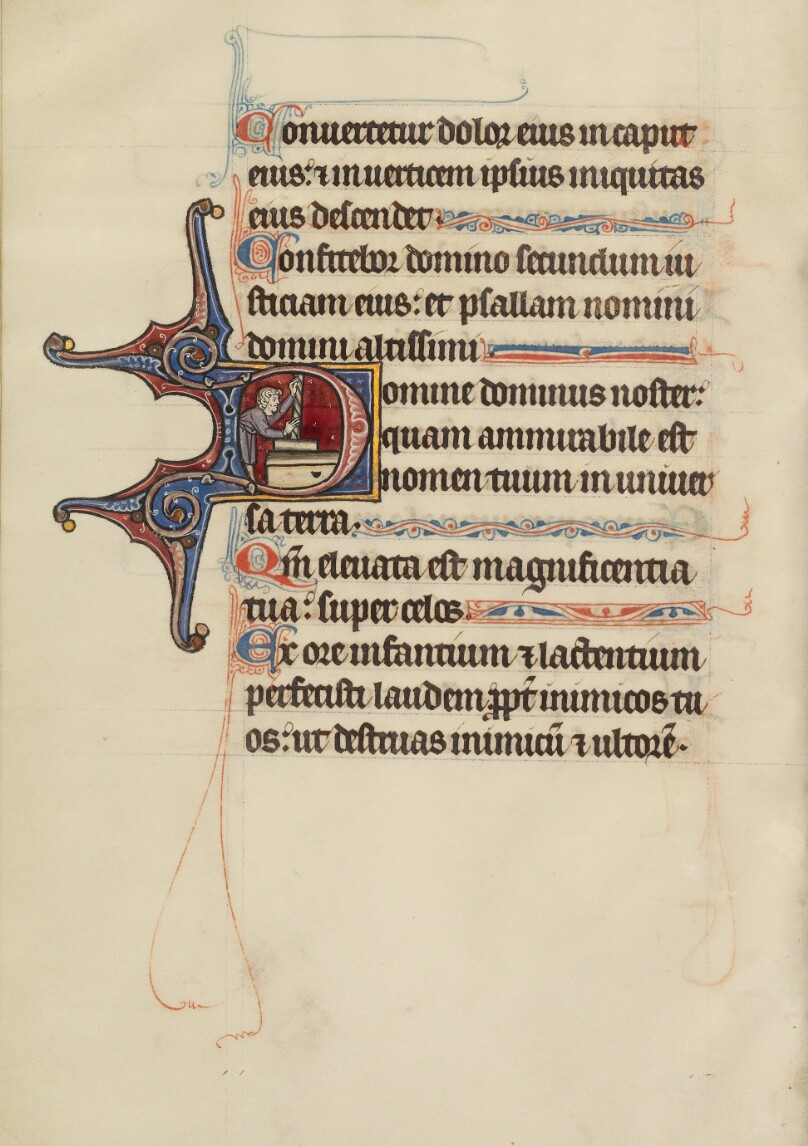 Conuertetur dolor eius in caput
eius: ⁊ in uerticem ipsius iniquitas
eius descendet.
Confitebor domino secundum iu
sticiam eius: et psallam nomini
domini altissimi
Domine dominus noster:
quam ammirabile est
nomen tuum in uniuer
sa terra.
Qm̄ eleuata est magnificentia
tua: super celos.
Ex ore infantium ⁊ lactentium
perfecisti laudem ꝓpt̄ inimicos tu
os: ut destruas inimicū ⁊ ultorē.